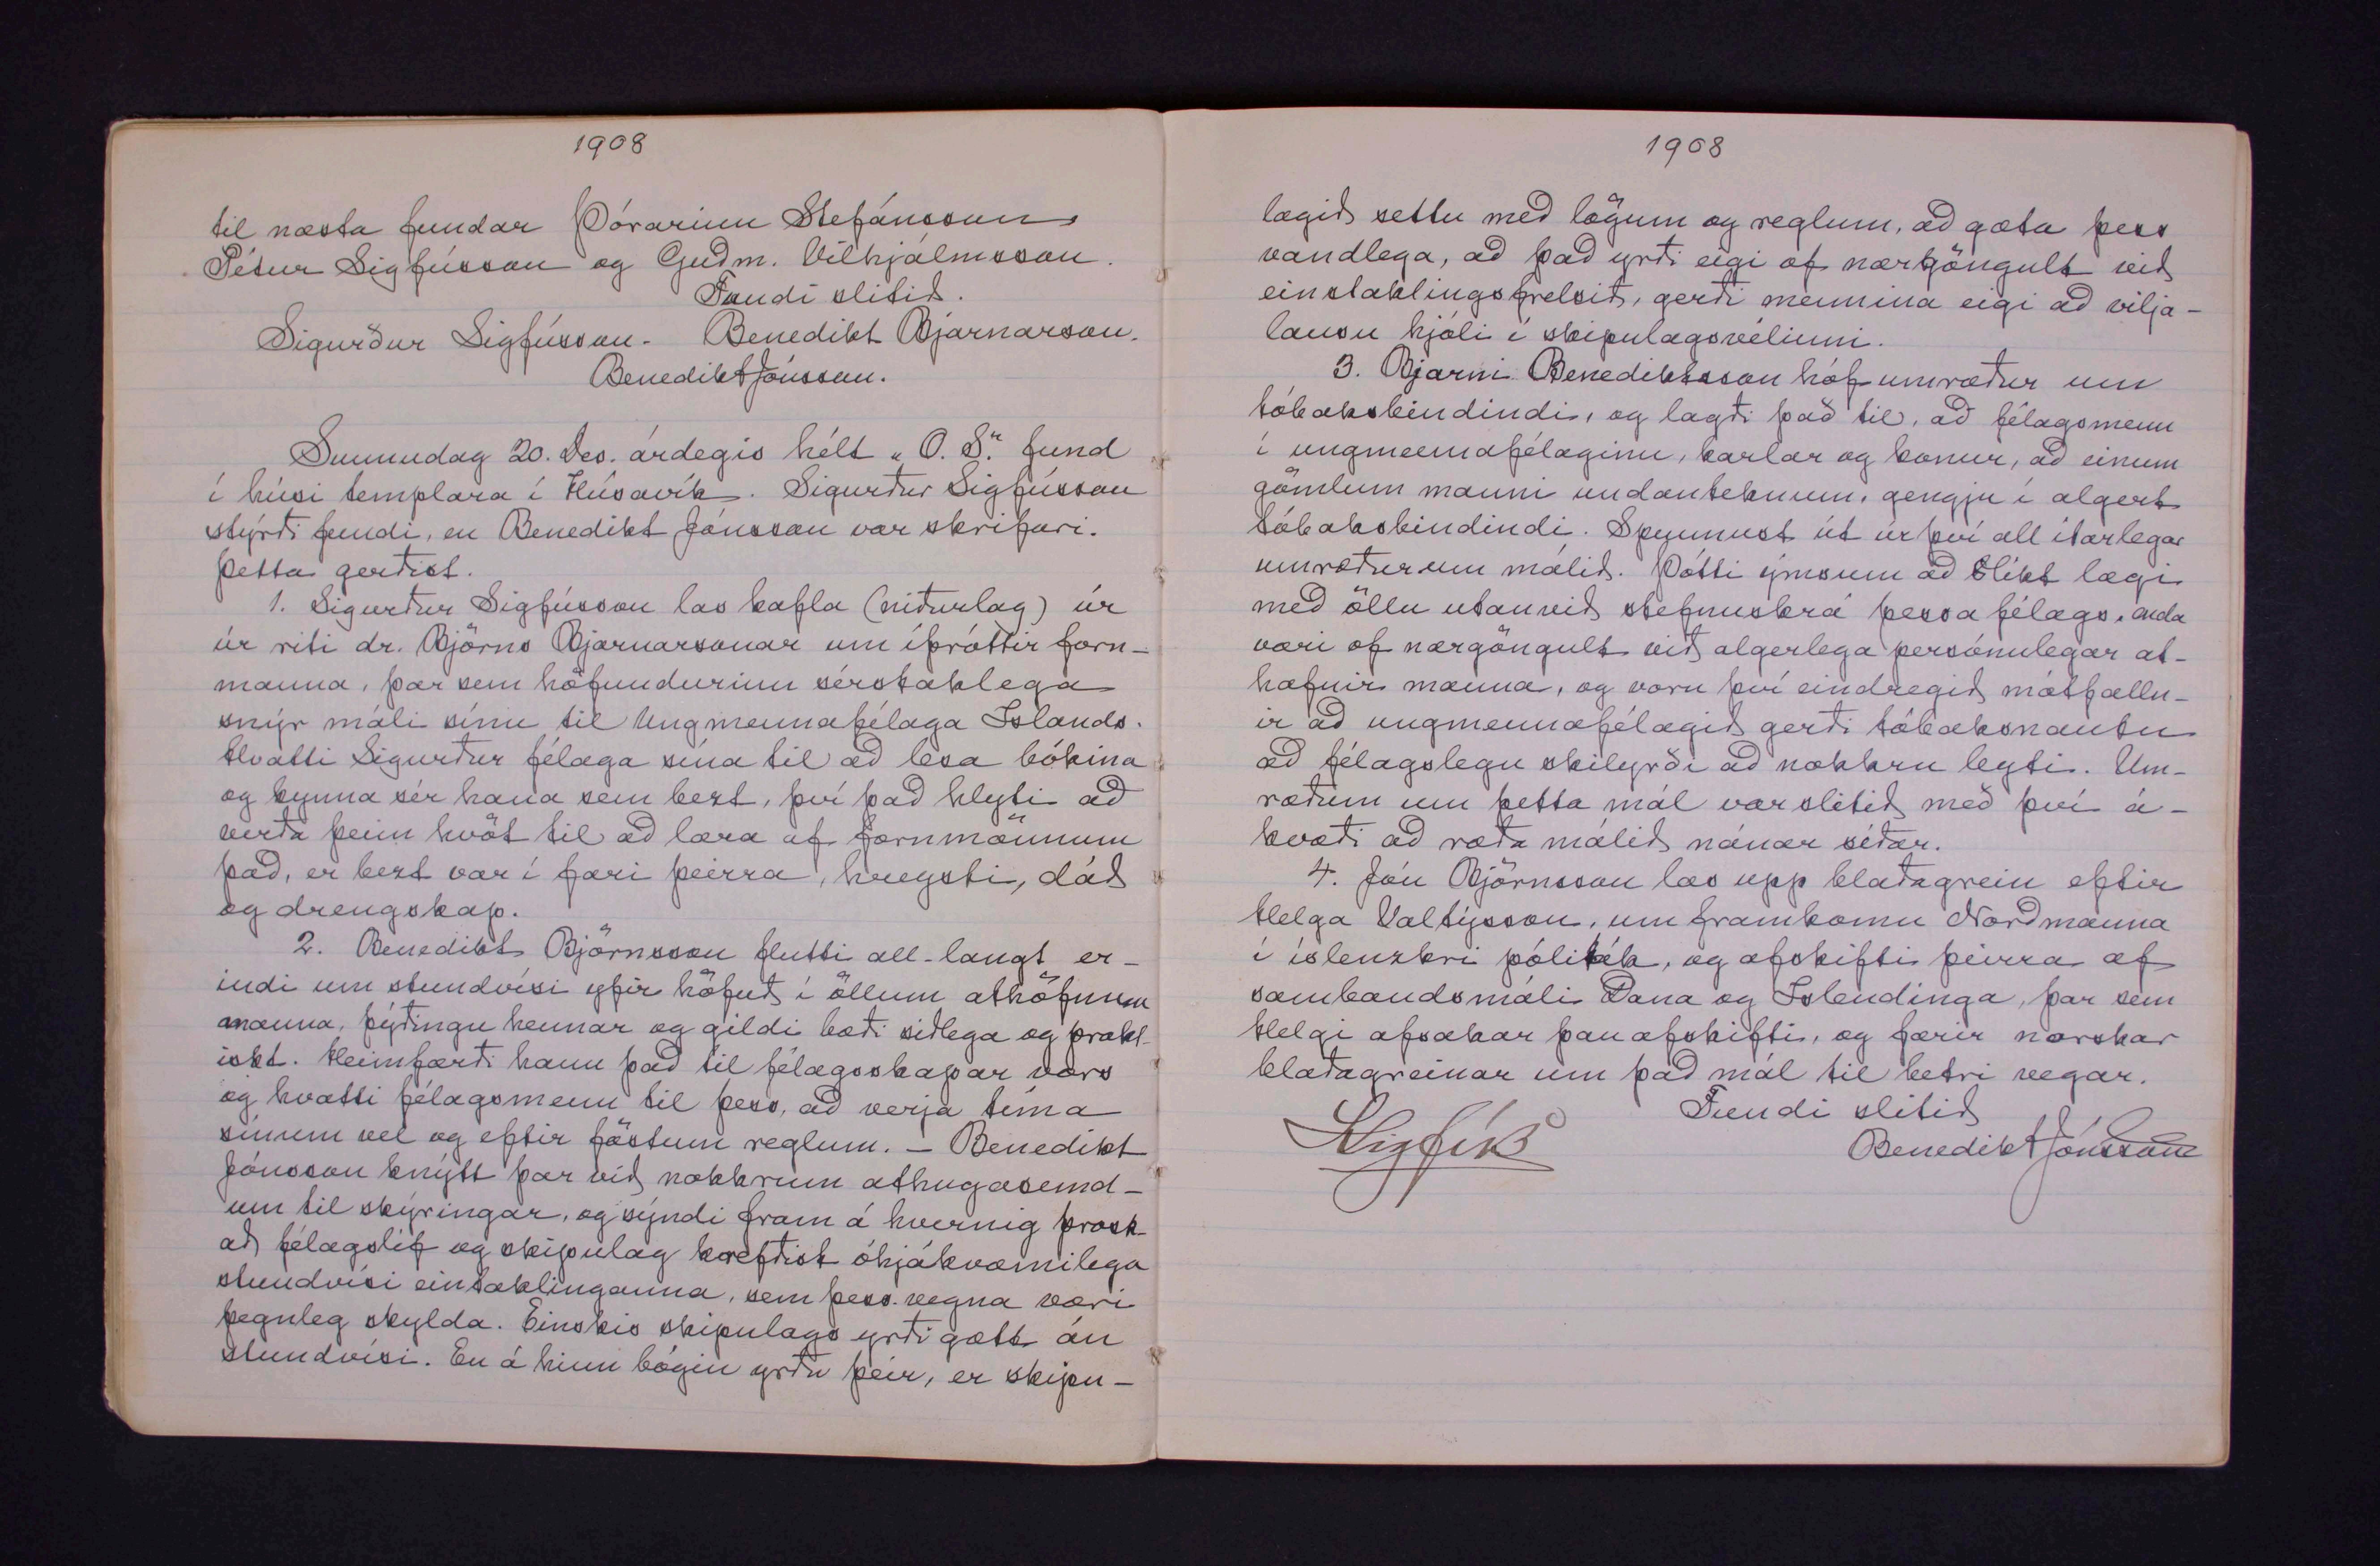 1908
til næsta fundar Þórarinn Stefánsson,
Pétur Sigfússon og Guðm. Vilhjálmsson.
Fundi slitið.
Sigurður Sigfússon. Benedikt Bjarnarson.
Benedikt Jónsson.
Sunnudag 20. Des. árdegis hélt "O. S." fund
í húsi templara í Húsavík. Sigurður Sigfússon
stýrði fundi, en Benedikt Jónsson var skrifari.
Þetta gerðist.
1. Sigurður Sigfússon las kafla (niðurlag) úr
úr riti dr. Björns Bjarnarsonar um íþróttir forn-
manna, þar sem höfundurinn sérstaklega
snýr máli sínu til Ungmennafélaga Islands.
Hvatti Sigurður félaga sína til að lesa bókina
og kynna sér hana sem bezt, því það hlyti að
verða þeim hvöt til að læra af fornmönnum
það, er bezt var í fari þeirra, hreysti, dáð
og drengskap.
2. Benedikt Björnsson flutti all-langt er-
indi um stundvísi yfir höfuð í öllum athöfnum
manna, þýðingu hennar og gildi bæði siðlega og prakt-
iskt. Heimfærði hann það til félagsskapar vors
og hvatti félagsmenn til þess, að verja tíma
sínum vel og eftir föstum reglum. - Benedikt
Jónsson knýtt þar við nokkrum athugasemd-
um til skýringar, og sýndi fram á hvernig þrosk-
að félagslíf og skipulag krefðist óhjákvæmilega
stundvísi einstaklinganna, sem þess vegna væri
þegnleg skylda. Einskis skipulags yrði gætt án
stundvísi. En á hinn bóginn yrðu þeir, er skipu-
1908
lagið settu með lögum og reglum, að gæta þess
vandlega, að það yrði eigi of nærgöngult við
einstaklingsfrelsið, gerði mennina eigi að vilja-
lausu hjóli í skipulagsvélinni.
3. Bjarni Benediktsson hóf umræður um
tóbaksbindindi, og lagði það til, að félagsmenn
í ungmennafélaginu, karlar og konur, að einum
gömlum manni undanteknum, gengju í algert
tóbaksbindindi. Spunnust út úr því all ítarlegar
umræður um málið. Þótti ýmsum að slíkt lægi
með öllu utanvið stefnuskrá þessa félags, enda
væri of nærgöngult við algerlega persónulegar at-
hafnir manna, og voru því eindregið mótfalln-
ir að ungmennafélagið gerði tóbaksnautn
að félagslegu skilyrði að nokkru leyti. Um-
ræðum um þetta mál var slitið með því á-
kvæði að ræða málið nánar síðar.
4. Jón Björnsson las upp blaðagrein eftir
Helga Valtýsson, um framkomu Norðmanna
í íslenzkri pólitík, og afskifti þeirra af
sambandsmáli Dana og Islendinga, þar sem
Helgi afsakar þau afskifti, og færir norskar
blaðagreinar um það mál til betri vegar.
Fundi slitið
Benedikt Jónsson